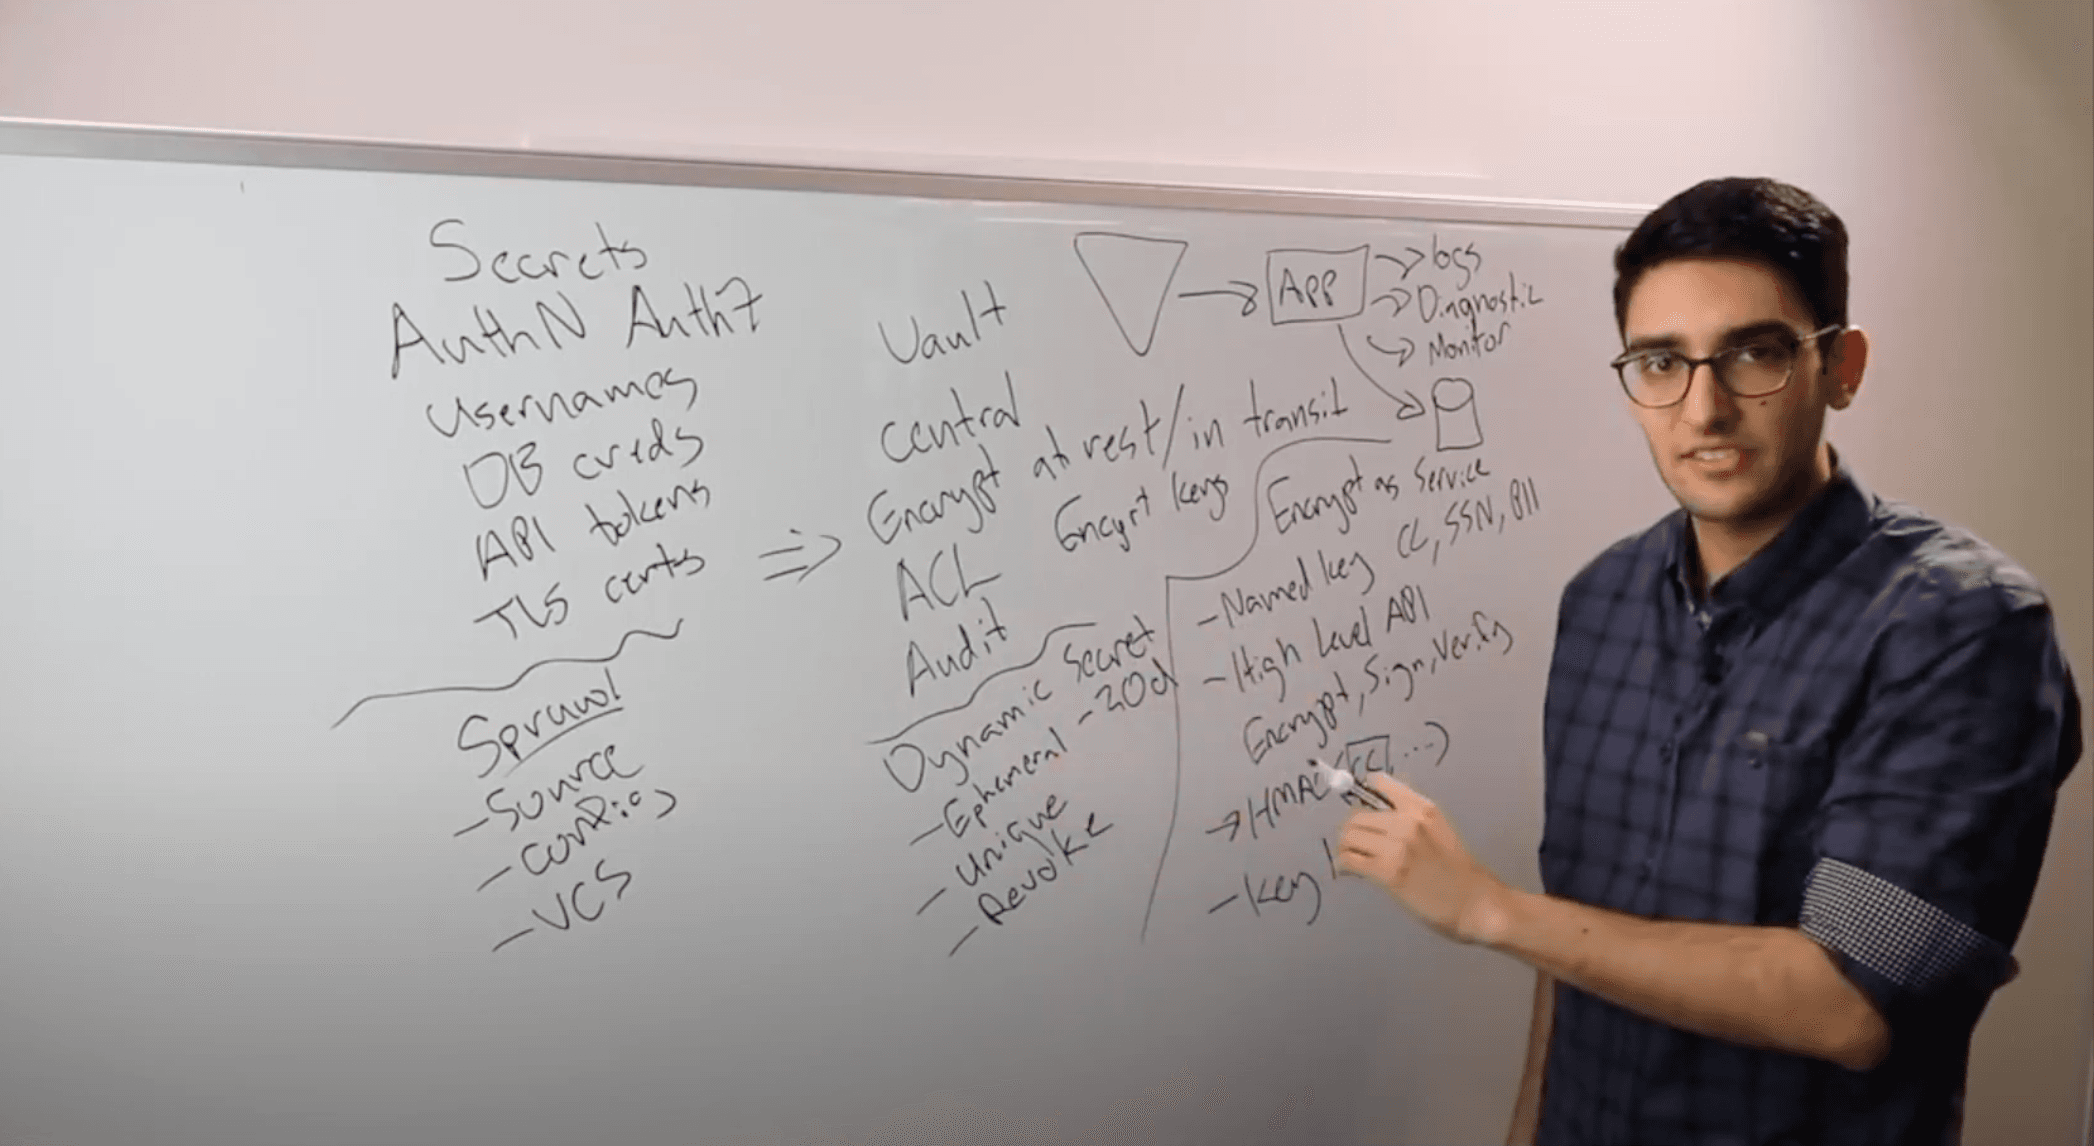 Secrets
AuthN AuthZ
Usernames
DB creds
API tokens
TLS certs
Sprawl
- Source
- Config
- VCS
⇒
Vault
Central
Encrypt at rest/in transit
Encrypt keys
ACL
Audit
Dynamic Secret
- Ephemeral - 30d
- Unique
- Revoke
App
→ logs
→ Diagnostic
→ Monitor
Encrypt as Service
- Named key CC, SSN, PII
- High Level API
Encrypt, Sign, Verify
→ HMAC(CC, ...)
- Key